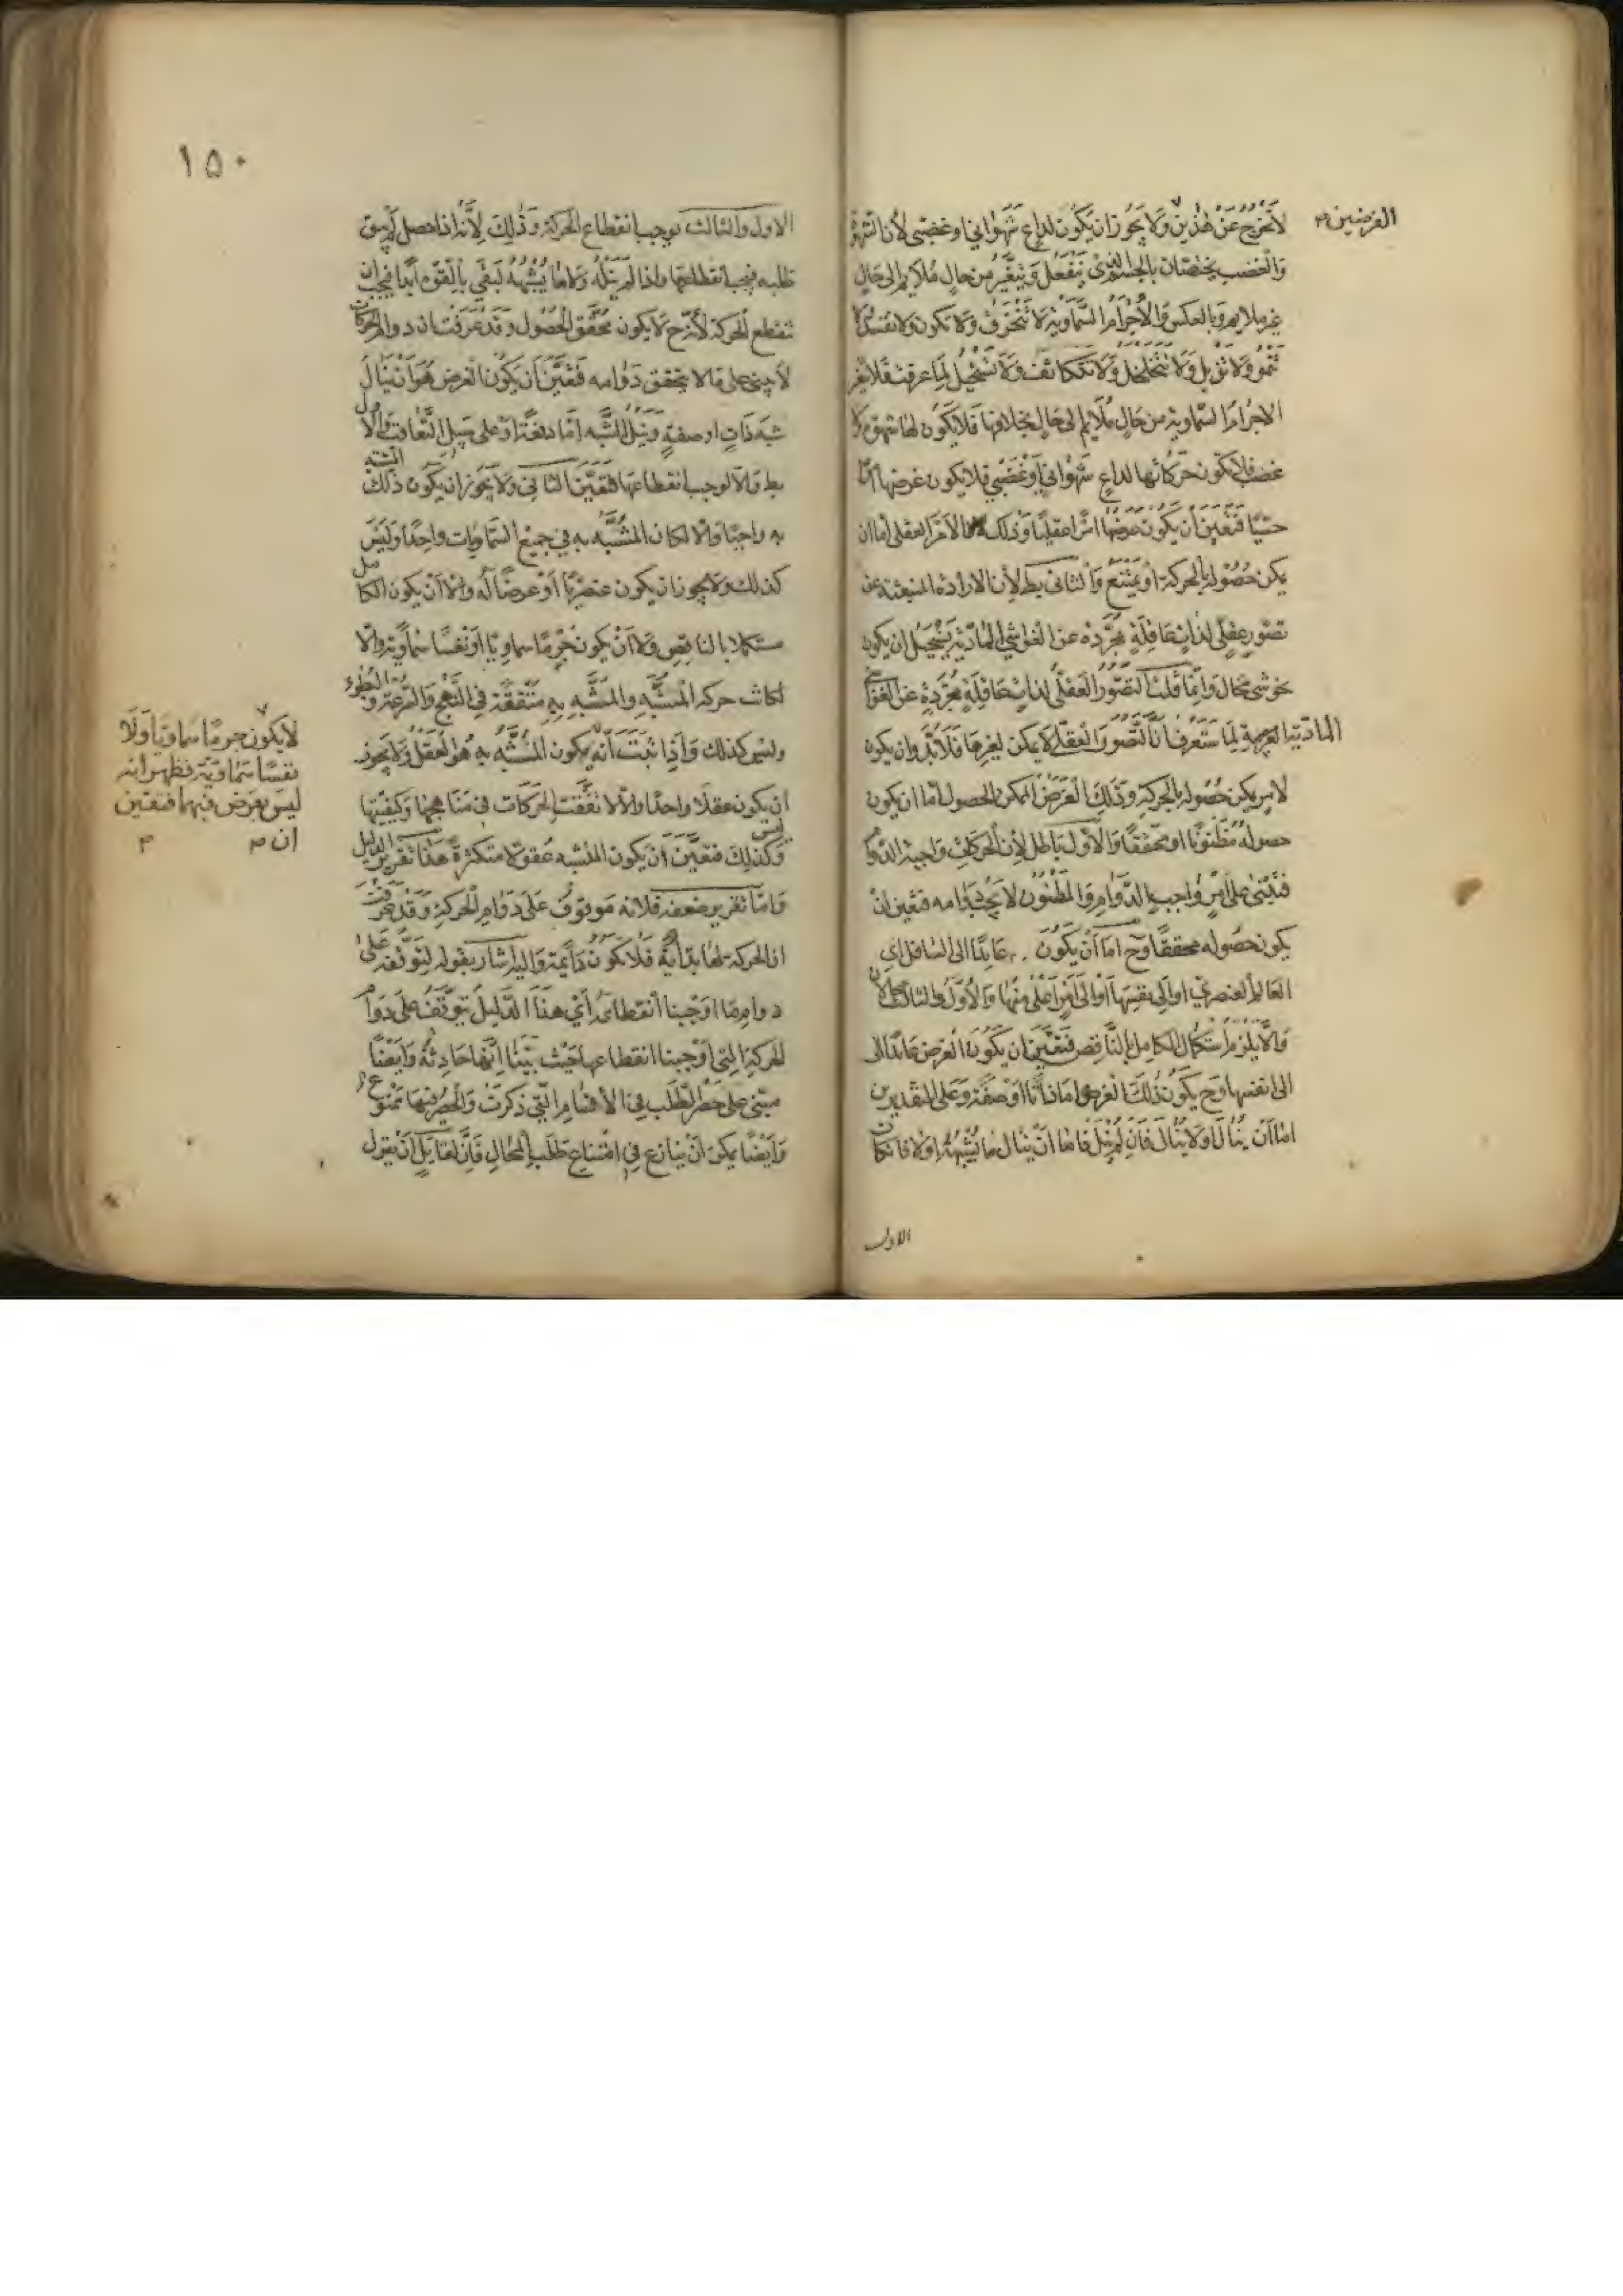 لا تخرج عن هذين ولا يجوز ان يكون لداع شهواني او غضبي لأن الشهوة
الغرضين م
والغضب يختصان بالجسم الذي ينفعل ويتغير من حال ملايم الى حال
غير ملايم وبالعكس والاجرام السماوية لا تنخرق ولا تكون ولا تفسد ولا
تنمو ولا تذبل ولا تتخلخل ولا تتكاثف ولا تستحيل لما عرفت فلا تغير
الاجرام السماوية من حال ملايم الى حال بخلافها فلا يكون لها شهوة ولا
غضب فلا تكون حركاتها لداع شهواني او غضبي فلا يكون غرضها امرا
حسيا فتعين أن يكون غرضها امرا عقليا وذلك الامر العقلي اما ان
يمكن حصوله بالحركة او يمتنع والثاني بط لأن الارادة المنبعثة عن
تصور عقلي لذات عاقلة مجردة عن الغواشي المادية يستحيل ان يكون
نحو شئ محال وانما قلنا التصور العقلي لذات عاقلة مجردة عن الغواشي
المادية لما ستعرف ان التصور العقلي لا يمكن لغيرها فلا بد وان يكون
لامر يمكن حصوله بالحركة وذلك الغرض الممكن الحصول اما ان يكون
حصوله مظنونا او محققا والاول باطل لأن الحركات واجبة الدوام
فتبتنى على امر واجب الدوام والمظنون لا يجب دوامه فتعين ان
يكون حصوله محققا وح اما أن يكون عايدا الى السافل اي
العالم العنصري او الى نفسها او الى امر اعلى منها والاول والثالث باطلان
والا يلزم استكمال الكامل بالناقص فتعين ان يكون الغرض عايدا الى
الى نفسها وح يكون ذلك الغرض اما ذاتا او صفة وعلى التقديرين
اما ان ينال او لا ينال فان لم ينل فاما ان ينال ما يشبهه او لا فان كان
الاول
١٥٠
الاول والثالث توجب انقطاع الحركة وذلك لأنه اذا حصل لم يبق
طلبه فيجب انقطاعها واذا لم ينله ولا ما يشبهه لبقي بالقوة ابدا فيجب ان
تنقطع الحركة لأنه ح لا يكون محقق الحصول وقد عرفت ان دوام الحركات
لا يبتنى على ما لا يتحقق دوامه فتعين أن يكون الغرض هو ان ينال
شبه ذات او صفة ونيل الشبه اما دفعة او على سبيل التعاقب والاول
بط والا لوجب انقطاعها فتعين الثاني ولا يجوز ان يكون ذلك المتشبه
به واجبا والا لكان المتشبه به في جميع السماويات واحدا وليس
كذلك ولا يجوز ان يكون عنصريا او عرضا له والا أن يكون الكامل
مستكملا بالناقص ولا أن يكون جرما سماويا او نفسا سماوية والا
لكانت حركة المتشبه والمتشبه به متفقة في النهج والسرعة والبطوء
وليس كذلك واذا ثبت أنه يكون المتشبه به هو العقل ولا يجوز
لا يكون جرما سماويا ولا
نفسا سماوية فظهر انه
ليس بعرض فيهما فتعين
ان م
ان يكون عقلا واحدا والا لاتفقت الحركات في مناهجها وكيفيتها
وليس كذلك فتعين ان يكون المتشبه عقولا متكثرة هذا تقرير الدليل
واما تقرير ضعفه فلانه موقوف على دوام الحركة وقد عرفت
ان الحركة لها بداية فلا تكون دايمة واليه اشار بقوله لتوقفه على
دوام ما اوجبنا انقطاعه أي هذا الدليل يتوقف على دوام
الحركة التي اوجبنا انقطاعها حيث بينا انها حادثة وايضا
مبنى على حصر الطلب في الاقسام التي ذكرت والحصر فيها ممنوع
وايضا يمكن أن ينازع في امتناع طلب المحال فان لقايل أن يقول